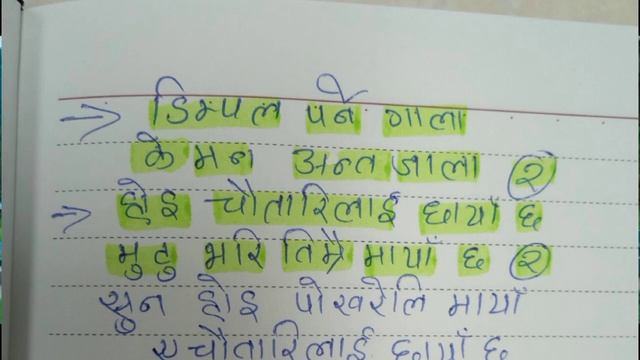 → डिम्पल पर्ने गाला
के मन अन्त जाला २
→ होइ चौतारिलाई छायाँ छ
मुटु भरि तिम्रै मायाँ छ २
सुन होइ पोखरेलि मायाँ
ए चौतारिलाई छायाँ छ